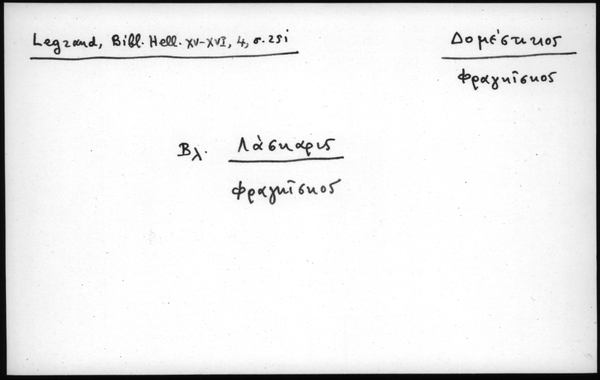 Legrand, Bibl. Hell. XV-XVI, 4, σ. 251
Δομέστικος
Φραγκῖσκος
Βλ. Λάσκαρις
Φραγκῖσκος